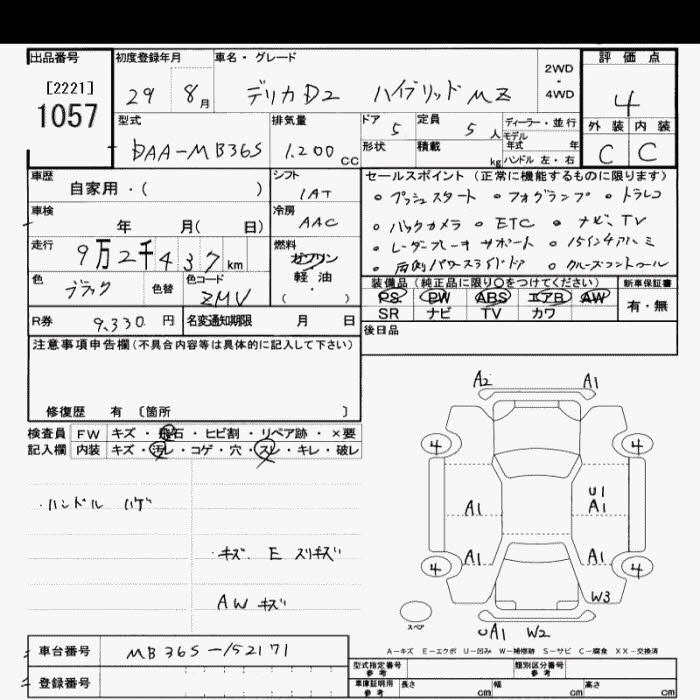 出品番号 初度登録年月 車名・グレード 評価点
[2221]
1057
29 8月 デリカD2 ハイブリッド MZ 2WD・4WD 4
型式 排気量 ドア 5 定員 5人 ディーラー・並行 外装 内装
モデル年式 年
DAA-MB36S 1.200cc 形状 積載 kg ハンドル 左・右 C C
車歴 シフト セールスポイント(正常に機能するものに限ります)
自家用・( ) IAT 。プッシュスタート 。フォグランプ 。トラレコ
車検 冷房 。バックカメラ 。ETC 。ナビ、TV
年 月( 日) AAC
走行 燃料 。レーダーブレーキサポート 。15インチアルミ
9万2千437km ガソリン
軽・油
・( ) 。両側パワースライドドア 。クルーズコントロール
色 色替 色コード 装備品(純正品に限り○をつけてください) 新車保証書
ブラック ZMV PS PW ABS エアB AW 有・無
SR ナビ TV カワ
R券 9.330円 名変通知期限 月 日 後日品
注意事項申告欄(不具合内容等は具体的に記入して下さい)
修復歴 有 〔箇所 〕
検査員 FW キズ・飛石・ヒビ割・リペア跡・×要
記入欄 内装 キズ・汚レ・コゲ・穴・スレ・キレ・破レ
A2 A1
4 4
・ハンドル ハゲ
U1
A1 A1
キズ E スリキズ
A1 A1
4 4
AW キズ
W3
スペア
UA1 W2
A-キズ E-エクボ U-凹み W-補修跡 S-サビ C-腐食 XX-交換済
車台番号 MB36S-152171
型式指定番号 参考 類別区分番号 参考
登録番号 車庫証明用 参考 長さ cm 幅 cm 高さ cm